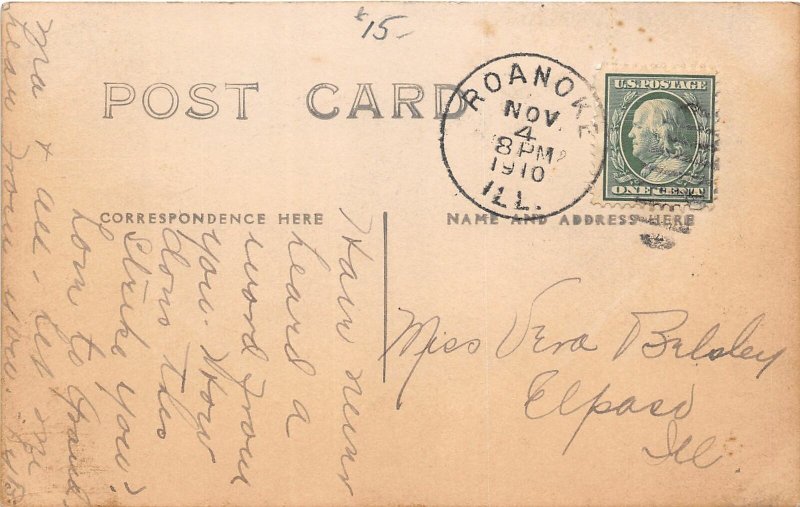 $15-
POST CARD
ROANOKE
NOV.
4
8 PM
1910
ILL.
U.S. POSTAGE
ONE CENT
CORRESPONDENCE HERE
NAME AND ADDRESS HERE
Have never
heard a
word from
you. How
dons this
Strike you?
Love to Grand
Ma & all - let me
hear from you.
Miss Vera Belsley
Elpaso
Ill.